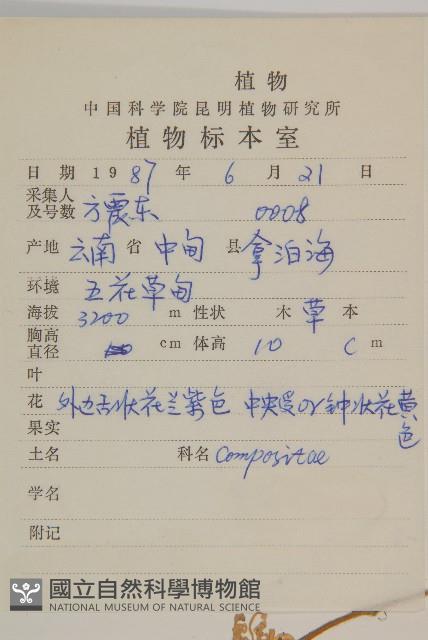 植物
中国科学院昆明植物研究所
植物标本室
日 期 1987 年 6 月 21 日
采集人及号数 方震东 0008
产地 云南 省 中甸 县 拿泊海
环境 五花草甸
海拔 3200 m 性状 木 草 本
胸高直径 cm 体高 10 cm
叶
花 外边舌状花兰紫色 中央 钟状花黄色
果实
土名 科名 Compositae
学名
附记
國立自然科學博物館
NATIONAL MUSEUM OF NATURAL SCIENCE